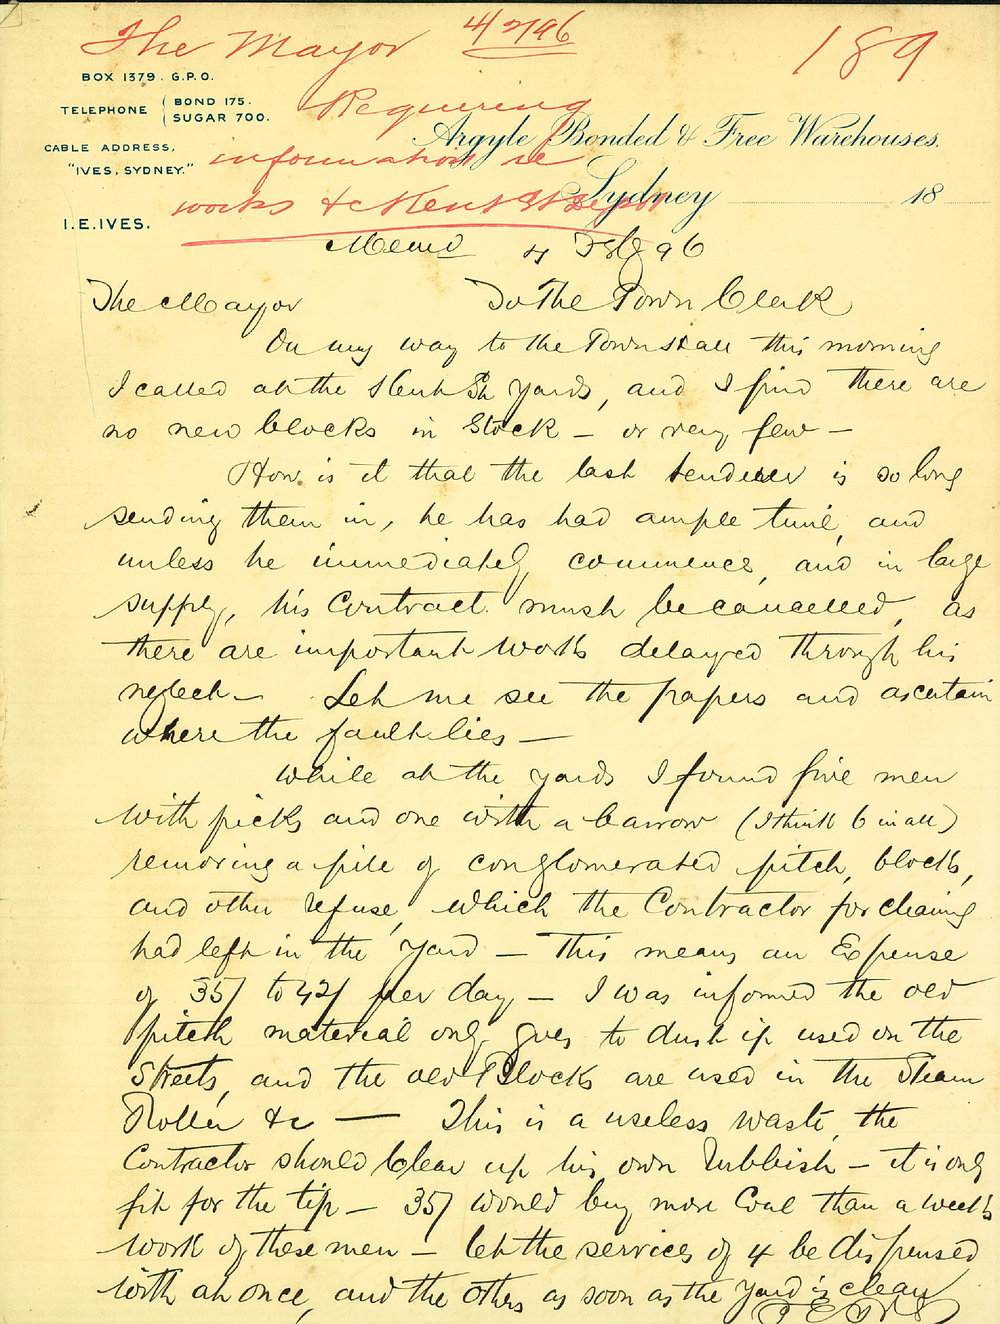 The Mayor 4/2/96 189
BOX 1379. G.P.O.
TELEPHONE { BOND 175.
SUGAR 700.
Requiring
Argyle Bonded & Free Warehouses.
CABLE ADDRESS,
"IVES, SYDNEY."
information re
Sydney 18
works &c Kent St Depot
I.E. IVES.
Memo 4 Feb 96
The Mayor To The Town Clerk
On my way to the Town Hall this morning
I called at the Kent St Yards, and I find there are
no new blocks in Stock - or very few -
How is it that the last tenderer is so long
sending them in, he has had ample time, and
unless he immediately commences, and in large
supply, his Contract must be cancelled, as
there are important works delayed through his
neglect - Let me see the papers and ascertain
where the fault lies -
While at the yards I found five men
with picks and one with a barrow (I think 6 in all)
removing a pile of conglomerated pitch, blocks,
and other refuse, which the Contractor for cleaning
had left in the Yard - This means an Expense
of 35/ to 42/ per day - I was informed the old
pitch material only goes to dust if used on the
Streets, and the old Blocks are used in the Steam
Roller &c - This is a useless waste, the
Contractor should clear up his own Rubbish - it is only
fit for the tip - 35/ would buy more Coal than a weeks
work of these men - let the services of 4 be dispensed
with at once, and the others as soon as the Yard is clean
I E IVES